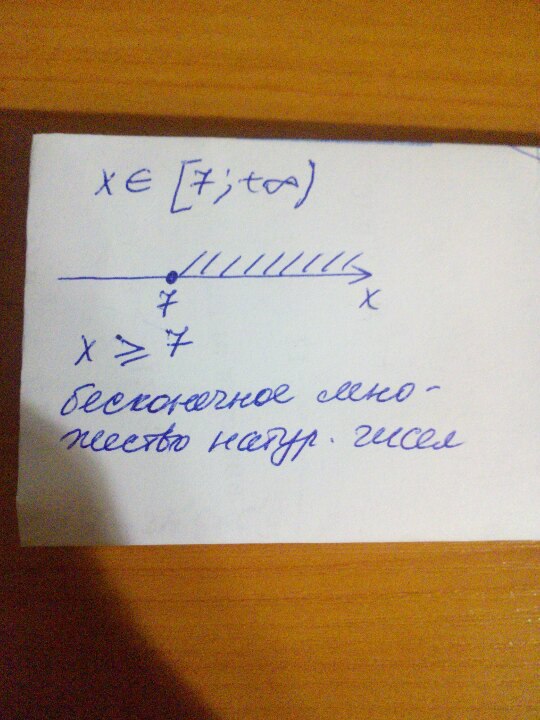 x ∈ [7; +∞)
7
x
x ⩾ 7
бесконечное мно-
жество натур. чисел